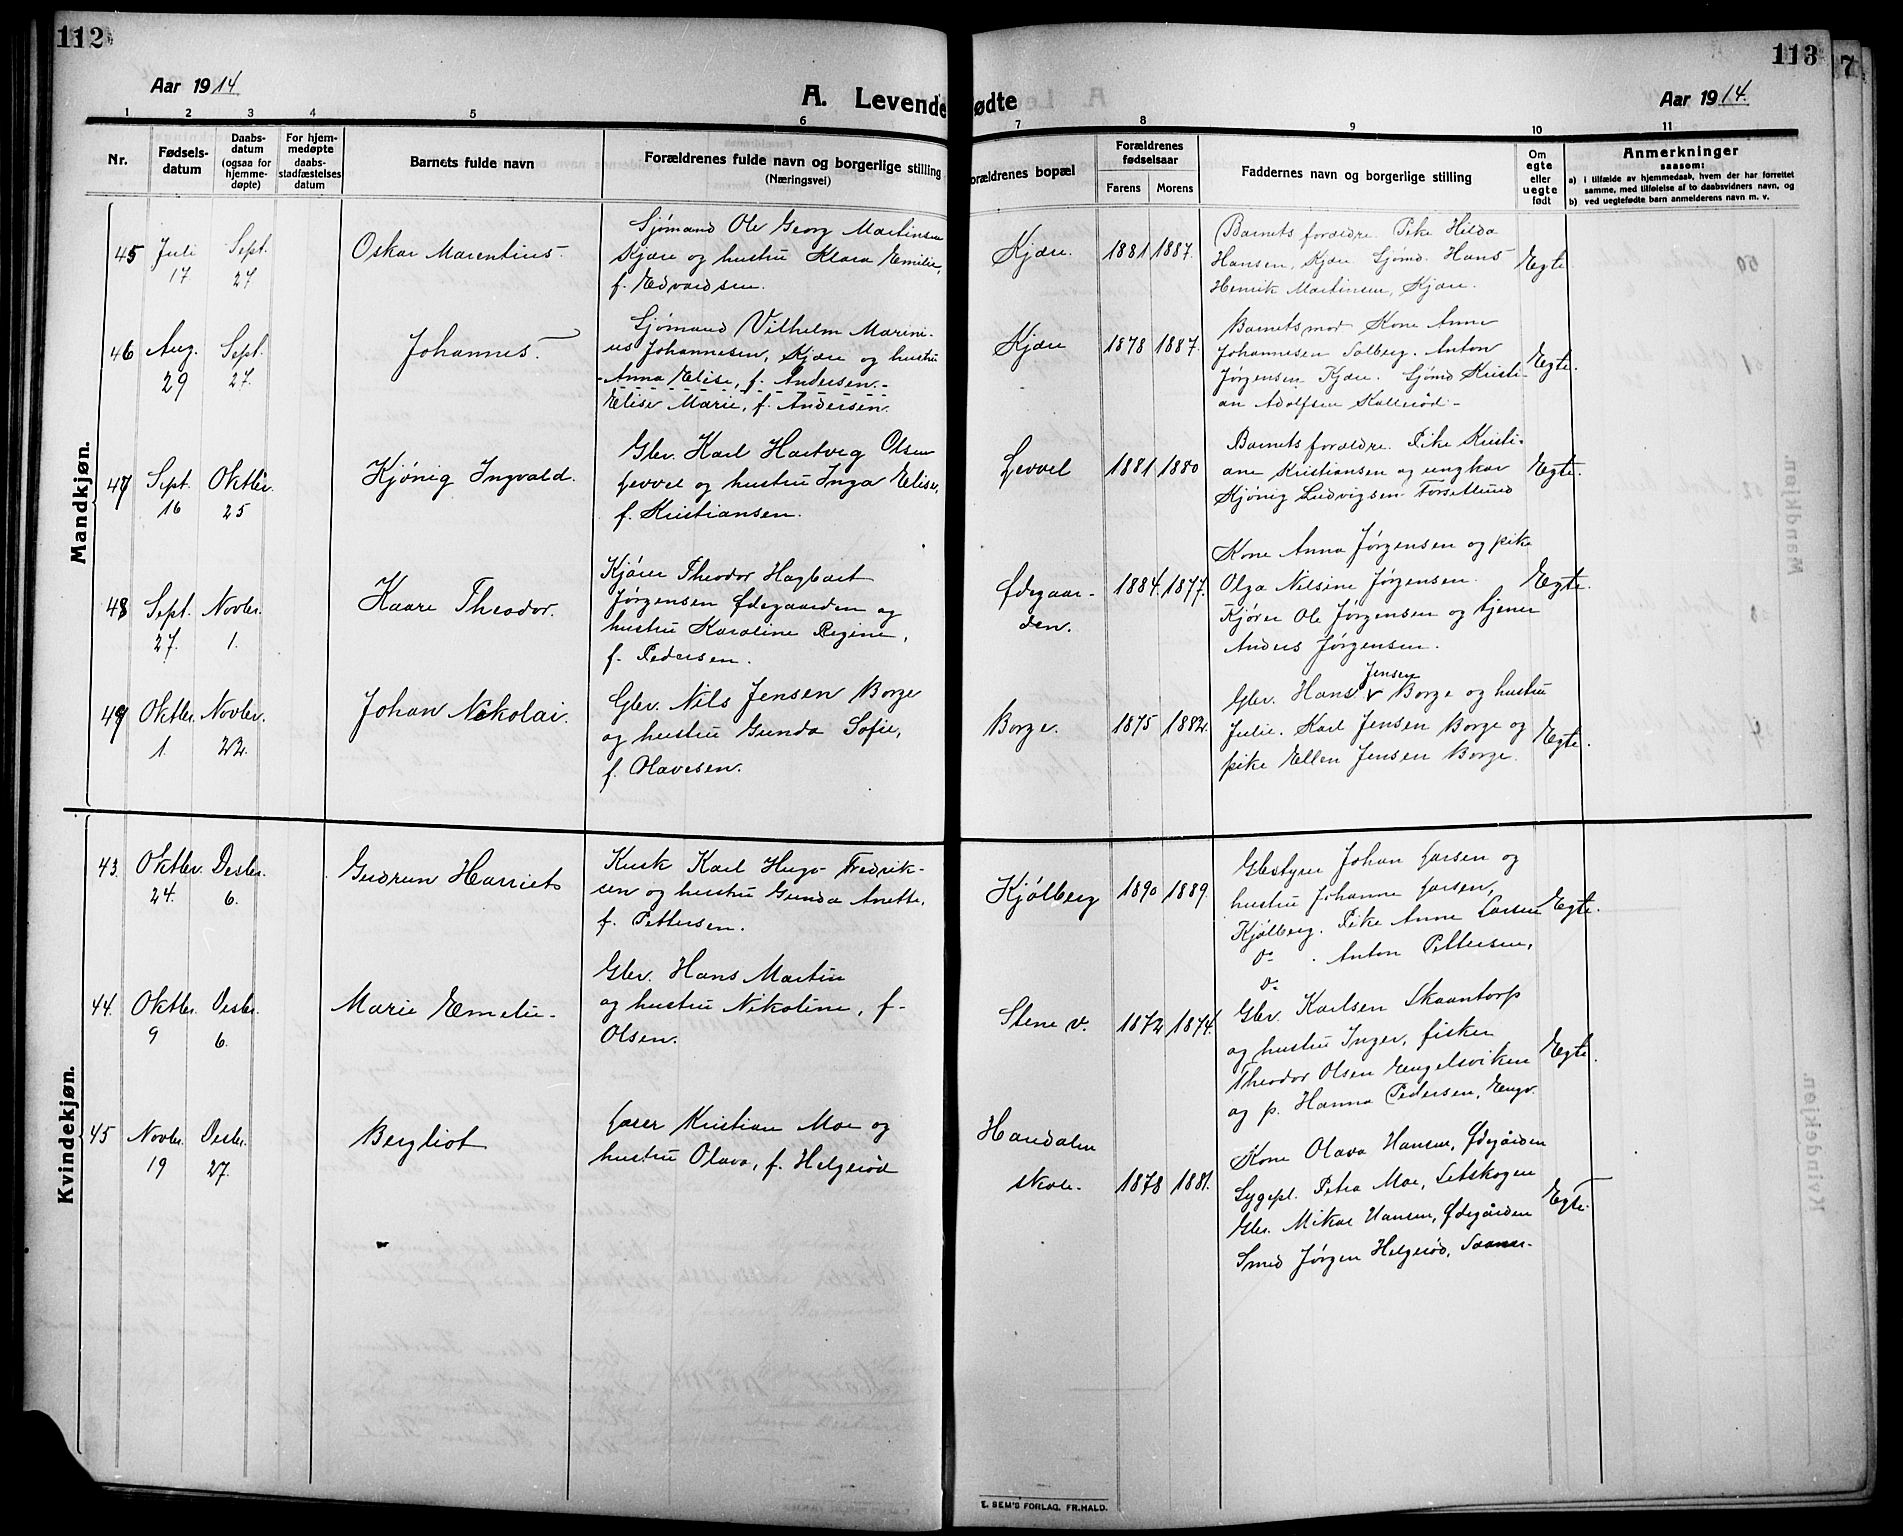 112
Aar 1914
A. Levendefødte
113
7
Aar 1914.
1 2 3 4 5 6 7 8 9 10 11
Nr.
Fødsels-
datum
Daabs-
datum
(ogsaa for
hjemme-
døpte)
For hjem-
medøpte
daabs-
stadfæstelses
datum
Barnets fulde navn
Forældrenes fulde navn og borgerlige stilling
(Næringsvei)
Forældrenes bopæl
Forældrenes
fødselsaar
Farens Morens
Faddernes navn og borgerlige stilling
Om
egte
eller
uegte
født
Anmerkninger
saasom:
a) i tilfælde av hjemmedaab, hvem der har forrettet
samme, med tilføielse af to daabsvidners navn, og
b) ved uegtefødte barn anmelderens navn m. v.
Mandkjøn.
45 Juli
17
Sept.
27
Oskar Marentius.
Sjømand Ole Georg Martinsen
Kjære og hustru Klara Emilie,
f. Edvardsen.
Kjære. 1881 1887.
Barnets forældre. Pike Hilda
Hansen, Kjære Sjømd. Hans
Henrik Martinsen, Kjære.
Egte.
46 Aug.
29
Sept.
27.
Johannes.
Sjømand Vilhelm Marini-
us Johannesen, Kjære og hustru
Anna Elise, f. Andersen.
Elise Marie, f. Andersen.
Kjære 1878 1887.
Barnets mor Kone Anne
Johannesen Solberg. Anton
Jørgensen Kjære. Sjømd Kristi-
an Adolfsen Kallerød.
Egte.
47 Sept.
16
Oktbr.
25
Kjønig Ingvald.
Gbr. Karl Hartvig Olsen
Levvel og hustru Inga Elise,
f. Kristiansen.
Levvel 1881 1880
Barnets forældre. Pike Kristi-
ane Kristiansen og ungkar
Kjønig Ludvigsen Torsetlund
Egte.
48 Sept.
27.
Novbr.
1.
Kaare Theodor.
Kjører Theodor Hagbart
Jørgensen Ødegaarden og
hustru Karoline Regine,
f. Pedersen.
Ødegaar-
den.
1884. 1877.
Kone Anna Jørgensen og pike
Olga Nilsine Jørgensen.
Kjører Ole Jørgensen og tjener
Anders Jørgensen.
Egte.
49 Oktbr.
1.
Novbr.
22.
Johan Nikolai.
Gbr. Nils Jensen Borge
og hustru Gunda Sofie,
f. Olavesen.
Borge. 1875 1882.
Jensen
Gbr. Hans v Borge og hustru
Julie. Karl Jensen Borge og
pike Ellen Jensen Borge.
Egte.
Kvindekjøn.
43. Oktbr.
24.
Desbr.
6.
Gudrun Harriet
Kusk Karl Hugo Fredrik-
sen og hustru Gunda Anette,
f. Pettersen.
Kjølberg 1890 1889.
Gbestyrer Johan Larsen og
hustru Johanne Larsen,
Kjølberg. Pike Anne Larsen
do . Anton Pettersen,
do
Egte.
44. Oktbr.
9
Desbr.
6.
Marie Emelie.
Gbr. Hans Martin
og hustru Nikoline, f.
Olsen.
Stene v. 1872 1874.
Gbr. Karlsen Skaantorp
og hustru Inger, fisker
Theodor Olsen Engelsviken
og p. Hanna Pedersen, Engv.
Egte.
45 Novbr.
19
Desbr.
27.
Bergliot
Lærer Kristian Moe og
hustru Olava, f. Helgerød
Haudalen
skole.
1878 1881.
Kone Olava Hansen, Ødegården
Sygepl. Petra Moe, Setskogen
Gbr. Mikal Hansen, Ødegården
Smed Jørgen Helgerød,
Egte.
E. SEM'S FORLAG. FR.HALD.